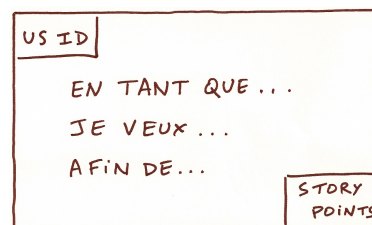 US ID
EN TANT QUE...
JE VEUX...
AFIN DE...
STORY
POINTS